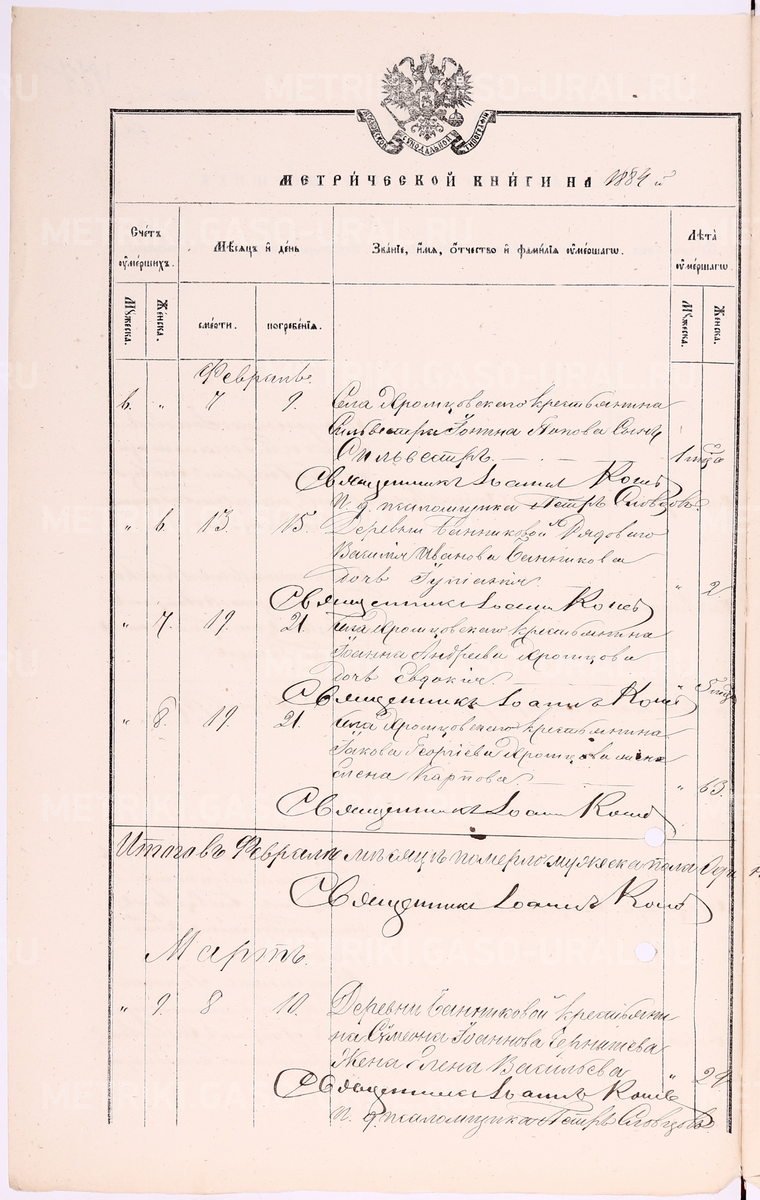 МЕТРИ́ЧЕСКОЙ КНИ́ГИ НА 1884 й
Сче́тъ ᲂу҆ме́ршихъ.
Мѣ́сяцъ и҆ де́нь
Зва́нїе, и҆́мя, ѻ҆́тчество и҆ фами́лїя ᲂу҆ме́ршагѡ.
Лѣ́та ᲂу҆ме́ршагѡ
Мꙋ́жеска.
Же́нска.
сме́рти.
погребе́нїя.
Мꙋ́жеска.
Же́нска.
Февраль.
6. „ 7 9. Села Хромцовскаго крестьянина
Сильвестра Іонина Попова сынъ
Сильвестръ. 1 года
Священникъ Іоаннъ
И. д. псаломщика Петръ Словцовъ
„ 6. 13. 15. Деревни Банниковой Рядоваго
Василія Иванова Банникова
дочь „ 2.
Священникъ Іоаннъ
„ 7. 19. 21. Села Хромцовскаго крестьянина
Іоанна Андреева Хромцова
дочь Евдокія. „ 5
Священникъ Іоаннъ
„ 8. 19. 21. Села Хромцовскаго крестьянина
Іакова Георгіева Хромцова жена
Елена Карпова „ 63.
Священникъ Іоаннъ
Итого въ Февралѣ мѣсяцѣ померло мужеска пола
Священникъ Іоаннъ
Мартъ.
„ 9. 8 10. Деревни Банниковой крестьяни-
на Сѵмеона Іоаннова
Жена Елена Васильева „ 29
Священникъ Іоаннъ
И. д. псаломщика Петръ Словцовъ
METRIKI.GASO-URAL.RU